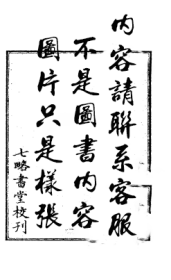 內容請聯系客服
不是圖書內容
圖片只是樣張
七略書堂校刊